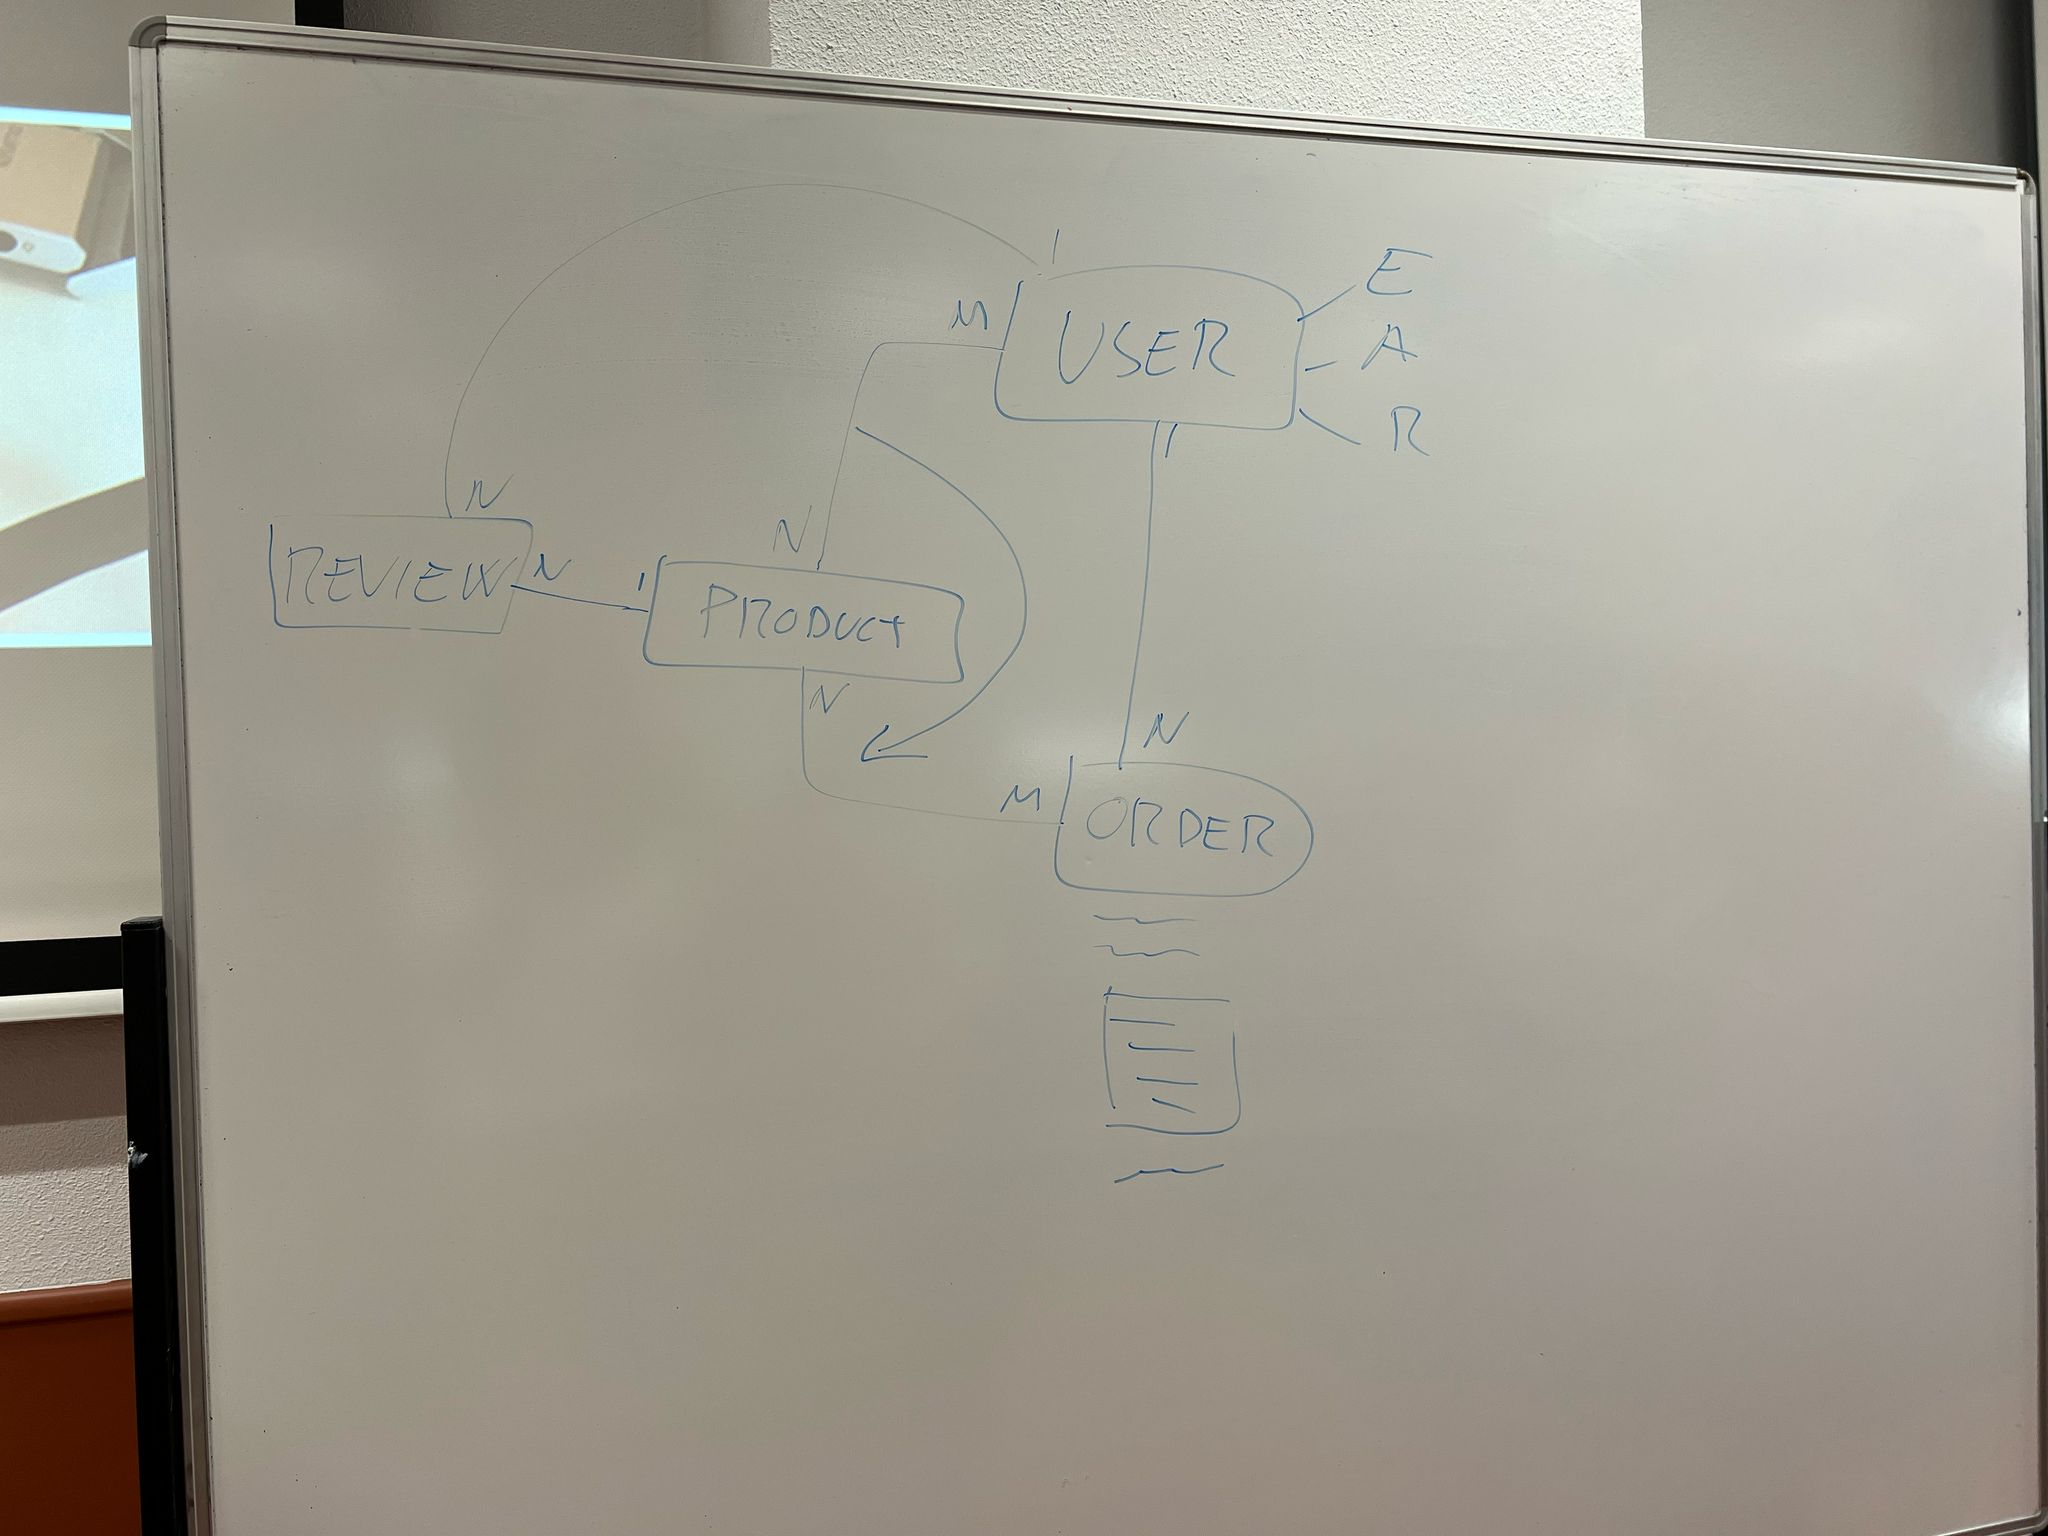 1
E
M
USER
A
R
1
N
N
REVIEW
N
1
PRODUCT
N
N
M
ORDER